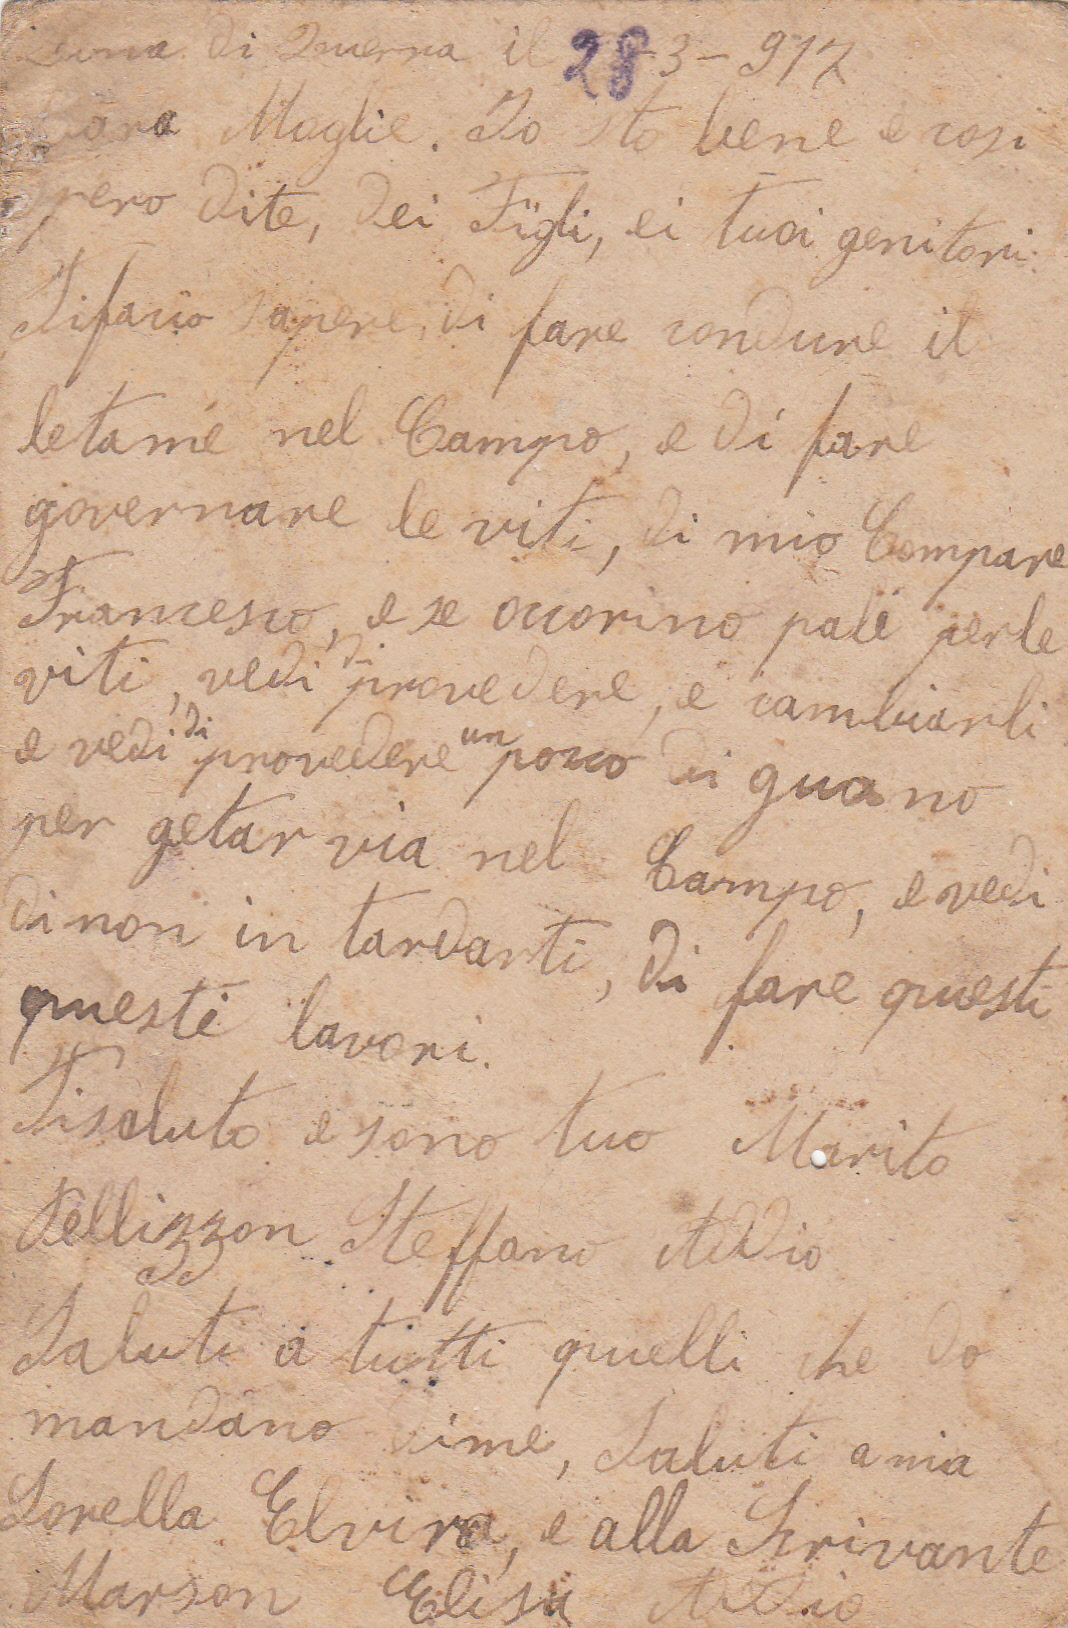 Zona di Querra il 28-3-917
Cara Moglie. Io sto bene e cosi
spero dite, dei Figli, ei tuoi genitori.
Tifacio sapere, di fare condure il
letame nel Campo, e di fare
governare le viti, di mio Compare
Francesco, e se occorino pali perle
viti, vedi di provedere, e cambiarli
e vedi di provedere un pocco di guano
per getar via nel Campo, e vedi
dinon in tardarti, di fare questi
questi lavori.
Tisaluto e sono tuo Marito
Pellizzon Steffano Addio
Saluti a tutti quelli che do
mandano dime, Saluti a mia
Sorella Elvira, e alla Scrivante
Marson Elisa Addio